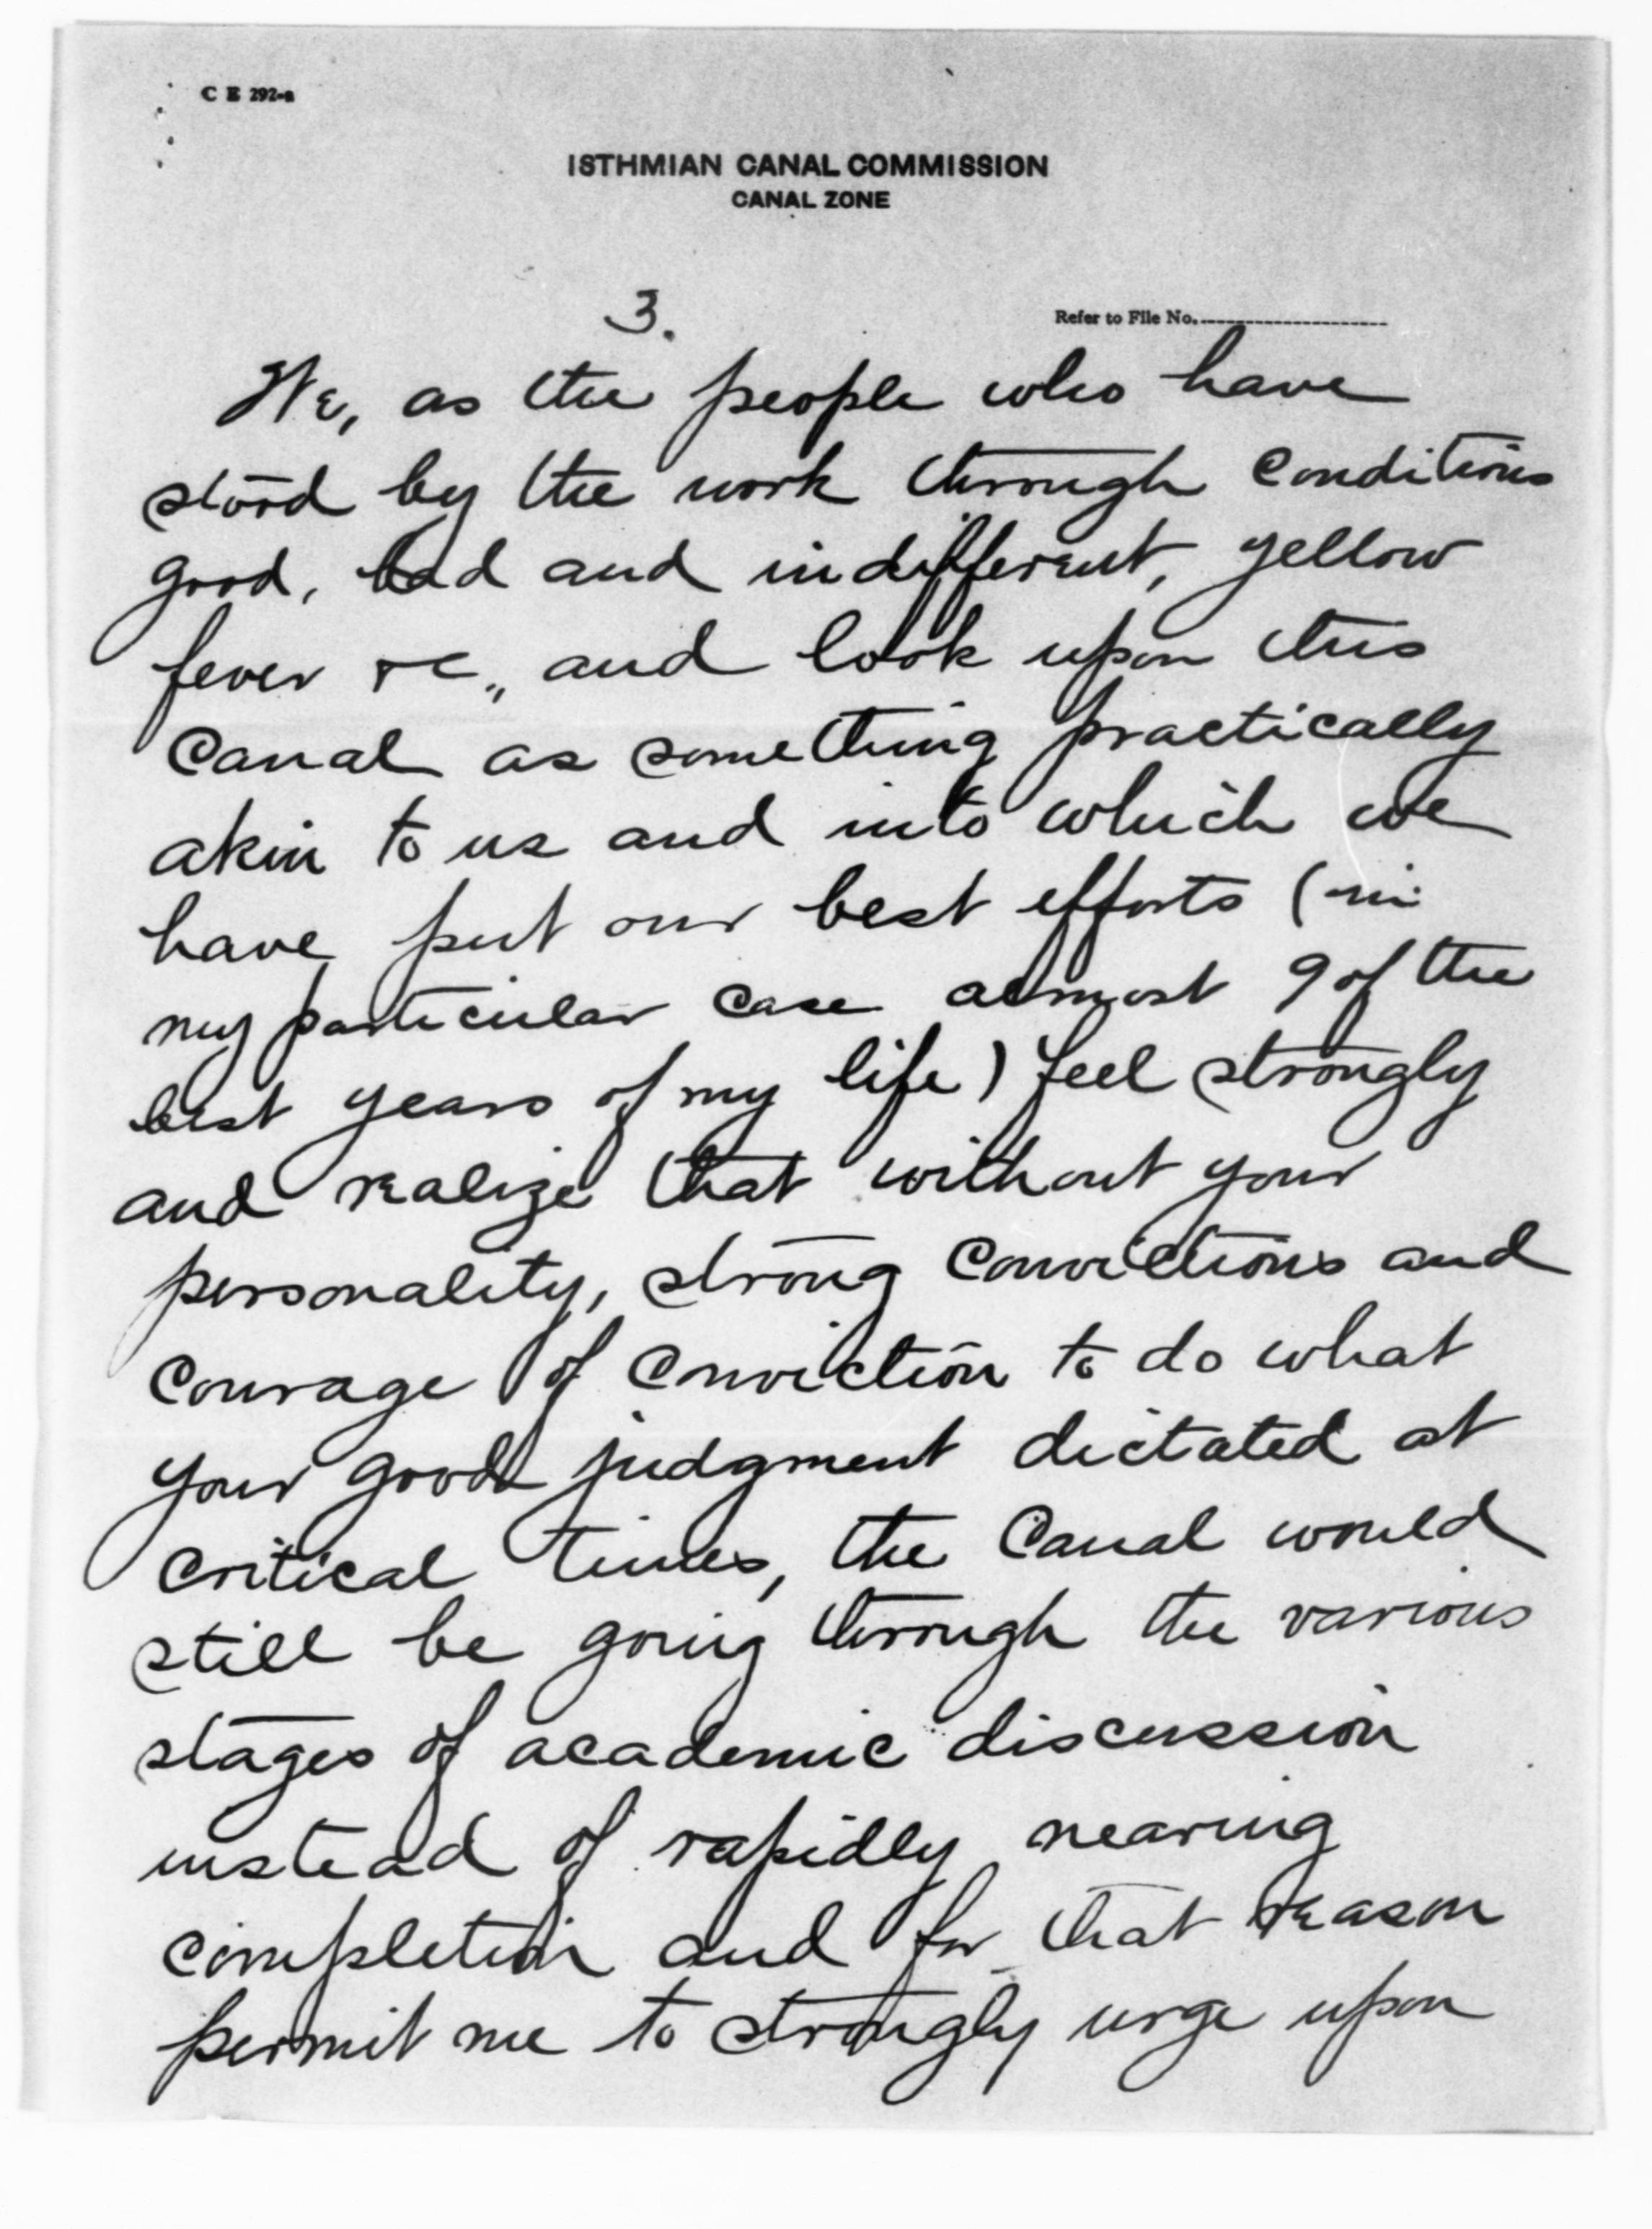 C E 292-a
ISTHMIAN CANAL COMMISSION
CANAL ZONE
3.
Refer to File No.
We, as the people who have
stood by the work through conditions
good, bad and indifferent, yellow
fever &c., and look upon this
Canal as something practically
akin to us and into which we
have put our best efforts (in
my particular case almost 9 of the
best years of my life) feel strongly
and realize that without your
personality, strong convictions and
courage of conviction to do what
your good judgment dictated at
critical times, the Canal would
still be going through the various
stages of academic discussion
instead of rapidly nearing
completion and for that reason
permit me to strongly urge upon